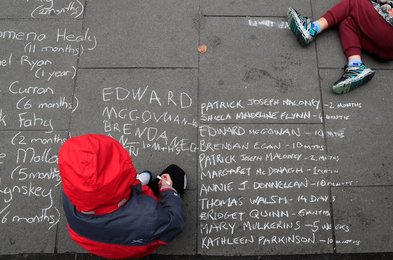 (2months)
omena Healy
(11 months)
el Ryan
(1 year)
Curran
(6 months)
k Fahy
(2 months
Mollo
(5mont
ynskey
(6 months)
EDWARD
MCGOWAN
BRENDAN
PATRICK JOSEPH MALONEY - 2 MONTHS
SHEILA MADELINE FLYNN - 4 MONTHS
EDWARD MCGOWAN - 10 MONTHS
BRENDAN EGAN - 10 MONTHS
PATRICK JOSEPH MALONEY - 2 MONTHS
MARGARET MCDONAGH - 1 MONTH
ANNIE J DONNELLAN - 10 MONTHS
THOMAS WALSH - 14 DAYS
BRIDGET QUINN - 6 MONTHS
MARY MULKERINS - 5 WEEKS
KATHLEEN PARKINSON - 10 MONTHS